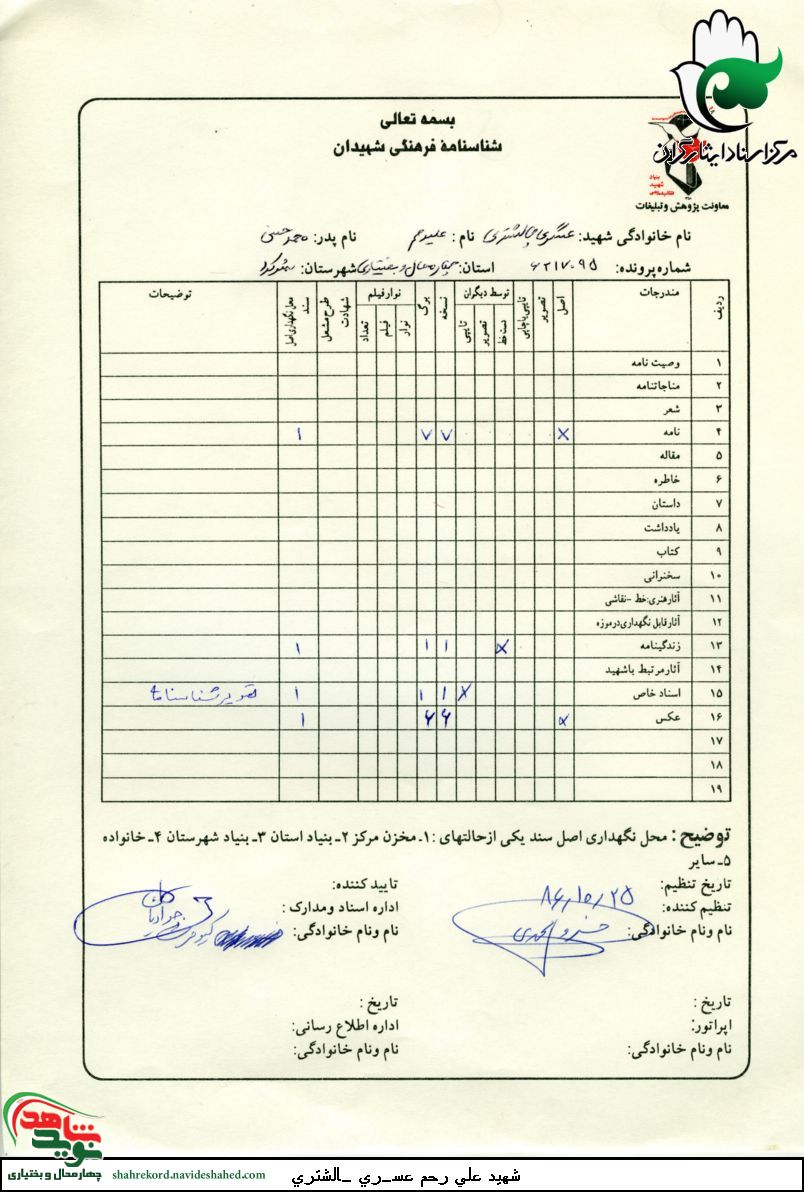 مرکز اسناد ایثارگران
بسمه تعالی
شناسنامهٔ فرهنگی شهیدان
بنیاد شهید انقلاب اسلامی
معاونت پژوهش و تبلیغات
نام خانوادگی شهید: عسگری چالشتری نام: علیرحم نام پدر: محمد حسین
شماره پرونده: ۶۲۱۷۰۹۵ استان: چهارمحال و بختیاری شهرستان: شهرکرد
ردیف مندرجات اصل تصویر تایپی یا چاپی توسط دیگران دست خط تصویر تایپی نسخه برگ نوار فیلم نوار فیلم تعداد طرح مشعل شهادت محل نگهداری اصل سند توضیحات
۱ وصیت نامه
۲ مناجاتنامه
۳ شعر
۴ نامه X ۷ ۷ ۱
۵ مقاله
۶ خاطره
۷ داستان
۸ یادداشت
۹ کتاب
۱۰ سخنرانی
۱۱ آثار هنری: خط - نقاشی
۱۲ آثار قابل نگهداری در موزه
۱۳ زندگینامه X ۱ ۱ ۱
۱۴ آثار مرتبط با شهید
۱۵ اسناد خاص X ۱ ۱ ۱ تصویر شناسنامه
۱۶ عکس X ۶ ۶ ۱
۱۷
۱۸
۱۹
توضیح: محل نگهداری اصل سند یکی از حالتهای: ۱ـ مخزن مرکز ۲ـ بنیاد استان ۳ـ بنیاد شهرستان ۴ـ خانواده
۵ـ سایر
تاریخ تنظیم: ۸۶/۱۰/۲۵ تایید کننده:
تنظیم کننده: اداره اسناد ومدارک:
نام ونام خانوادگی: خسرو احمدی نام ونام خانوادگی:
تاریخ: تاریخ:
اپراتور: اداره اطلاع رسانی:
نام ونام خانوادگی: نام ونام خانوادگی:
نوید شاهد
چهارمحال و بختیاری shahrekord.navideshahed.com شهيد علي رحم عسـري ـالشتري